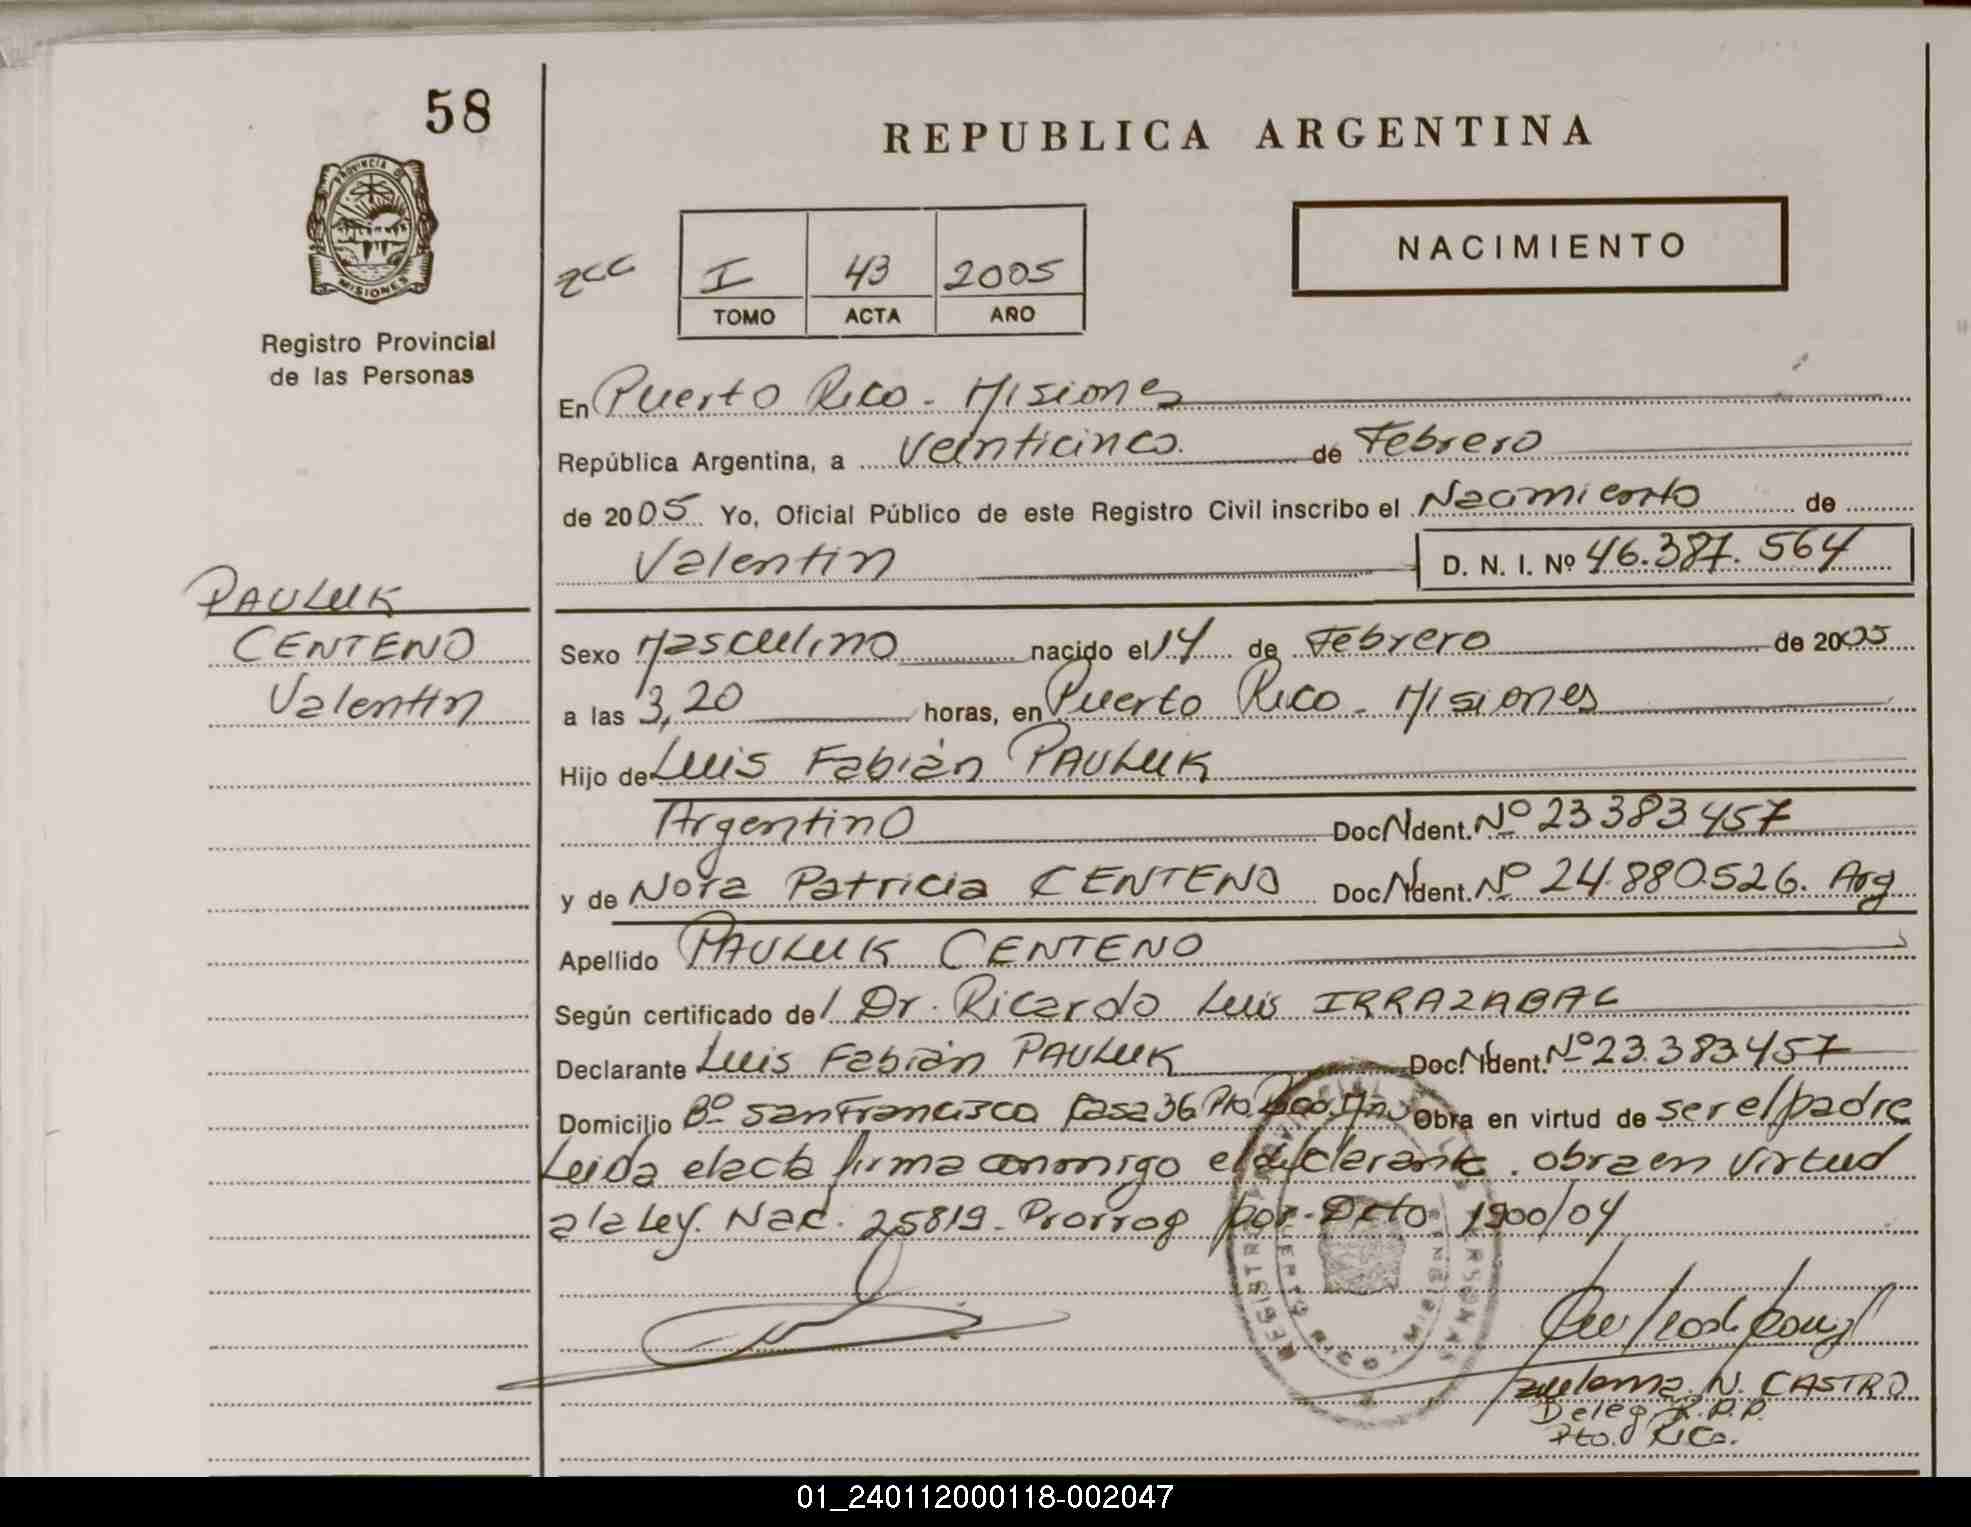 58
REPUBLICA ARGENTINA
PROVINCIA DE
MISIONES
Registro Provincial
de las Personas
NACIMIENTO
zcc I 43 2005
TOMO ACTA AÑO
En Puerto Rico - Misiones
República Argentina, a Veinticinco de Febrero
de 2005 Yo, Oficial Público de este Registro Civil inscribo el Nacimiento de
Valentin D. N. I. Nº 46.387.564
PAULUK
CENTENO
Valentin
Sexo Masculino nacido el 14 de Febrero de 2005
a las 3,20 horas, en Puerto Rico - Misiones
Hijo de Luis Fabián PAULUK
Argentino Doc.N Ident. Nº 23383457
y de Nora Patricia CENTENO Doc.N Ident. Nº 24.880.526. Arg
Apellido PAULUK CENTENO
Según certificado del Dr. Ricardo Luis IRRAZABAL
Declarante Luis Fabián PAULUK Doc.N Ident. Nº 23.383.457
Domicilio Bº San Francisco Casa 36 Pto. Rico. Mns Obra en virtud de ser el padre
Leida el acta firma conmigo el declarante. obra en virtud
a la Ley. Nac. 25819 - Prorrog por - Dcto 1900/04
Zulema N. CASTRO
Deleg. R.P.P.
Pto. Rico.
01_240112000118-002047